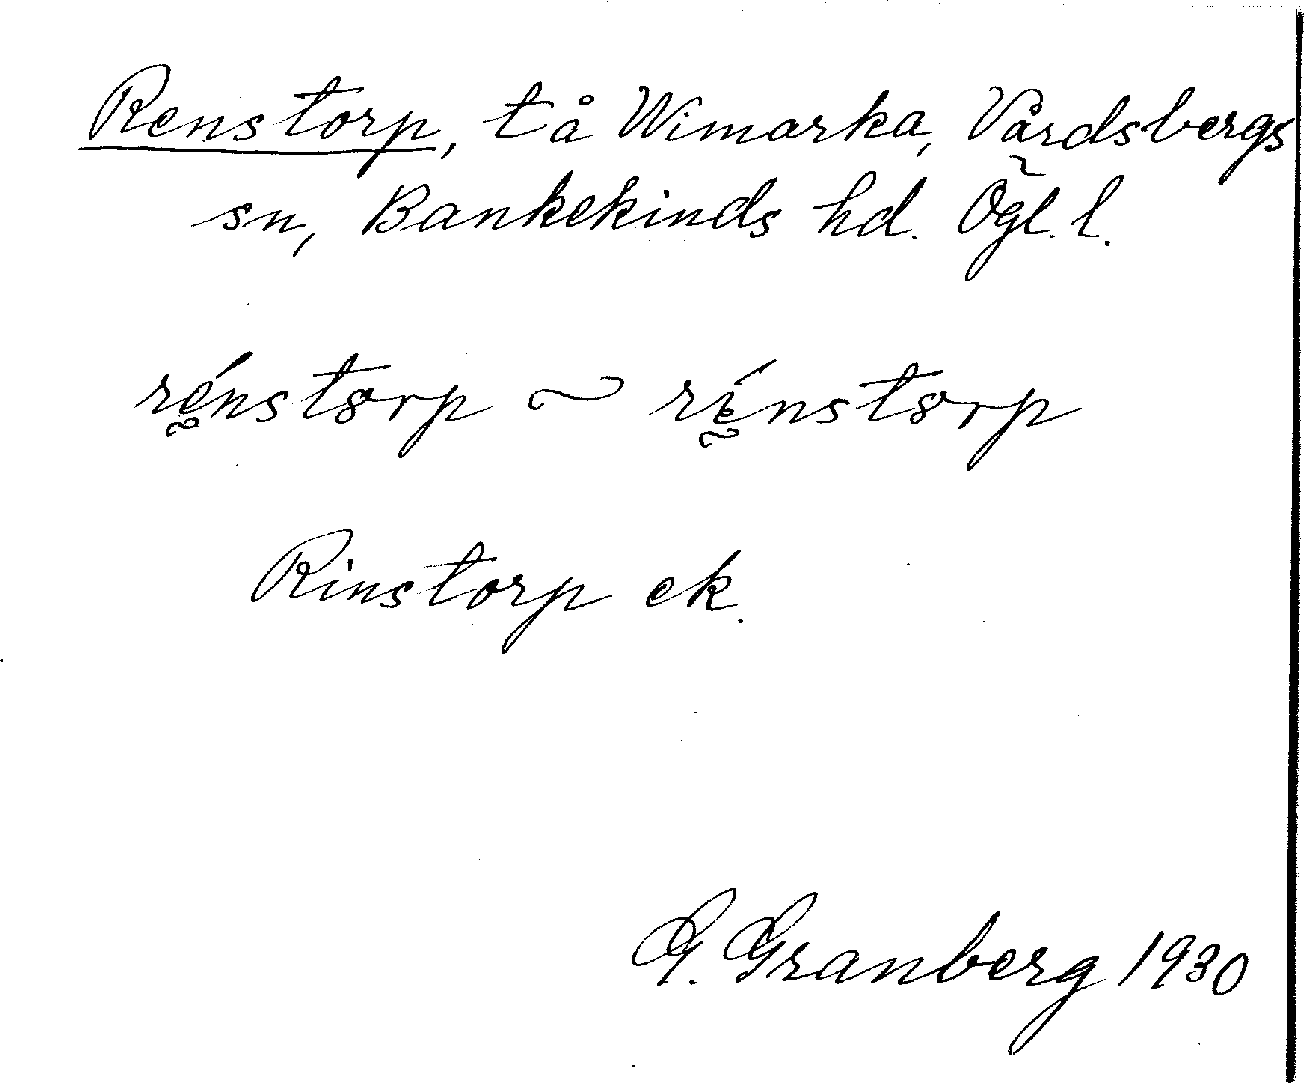 Renstorp, tå Wimarka, Vårdsbergs
sn, Bankekinds hd. Ögl. l.
rénstorp ~ rínstorp
Rinstorp ek.
G. Granberg 1930